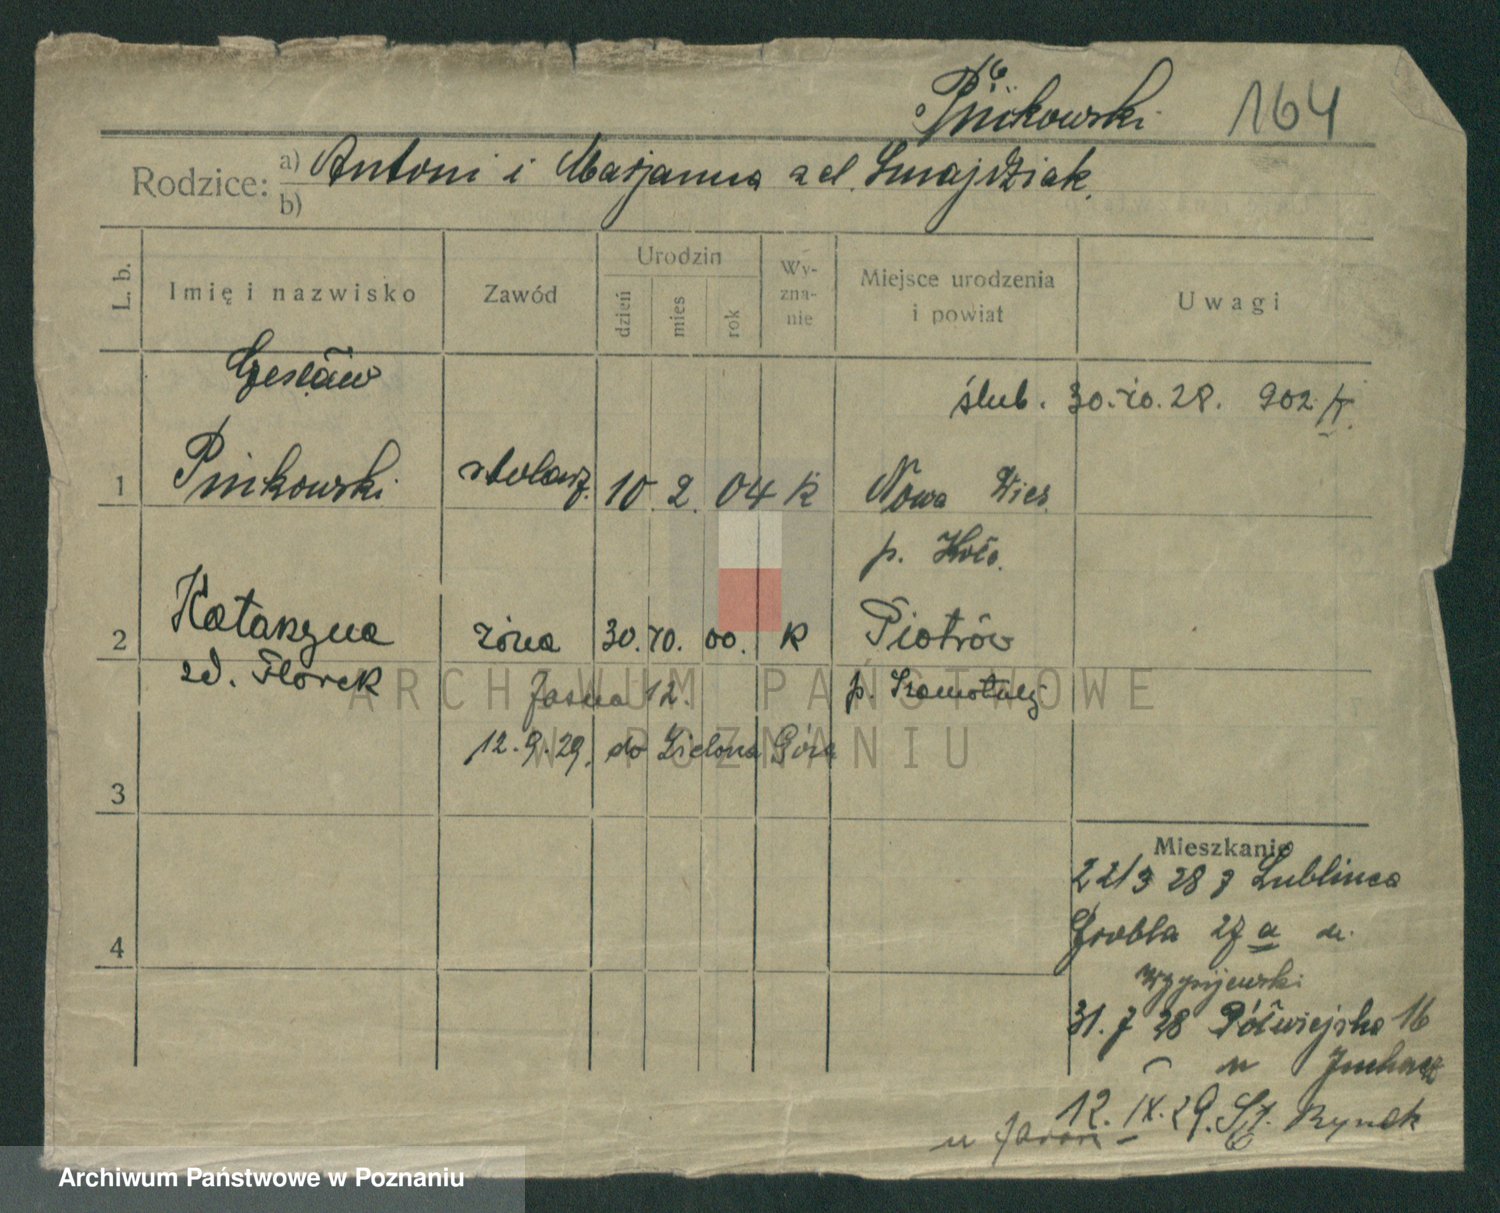 Pinkowski 164
Rodzice: a) Antoni i Marjanna zd. Smajdziak
b)
L. b. Imię i nazwisko Zawód Urodzin dzień mies rok Wy-zna-nie Miejsce urodzenia i powiat Uwagi
Czesław
ślub. 30.10.28. 902
1 Pinkowski stolarz. 10. 2. 04 K Nowa Wieś
p. Koło.
2 Katarzyna żona 30. 10. 00. K Piotrów
zd. Florek Jasna 12. p. Szamotuły
12.9.29. do Zielona Góra
3
Mieszkanie
22/3 28 z Lublińca
Grobla 27 a u.
4
31.7 28 Półwiejska 16
u Juhacz
12. IX. 29. St. Rynek
ARCHIWUM PAŃSTWOWE
W POZNANIU
Archiwum Państwowe w Poznaniu